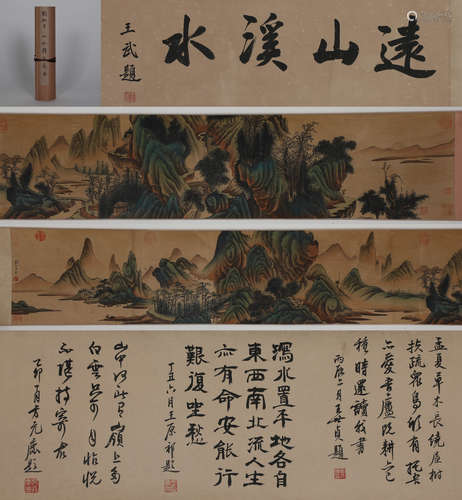 遠山溪水
王武題
孟夏草木長繞屋樹
扶疏衆鳥欣有托吾
亦愛吾廬既耕亦
種時還讀我書
丙辰二月王世貞題
瀉水置平地各自
東西南北流人生
亦有命安能行
歎復坐愁
丁丑六月王原祁題
山中何所有嶺上多
白雲只可自怡悅
不堪持寄君
乙卯月